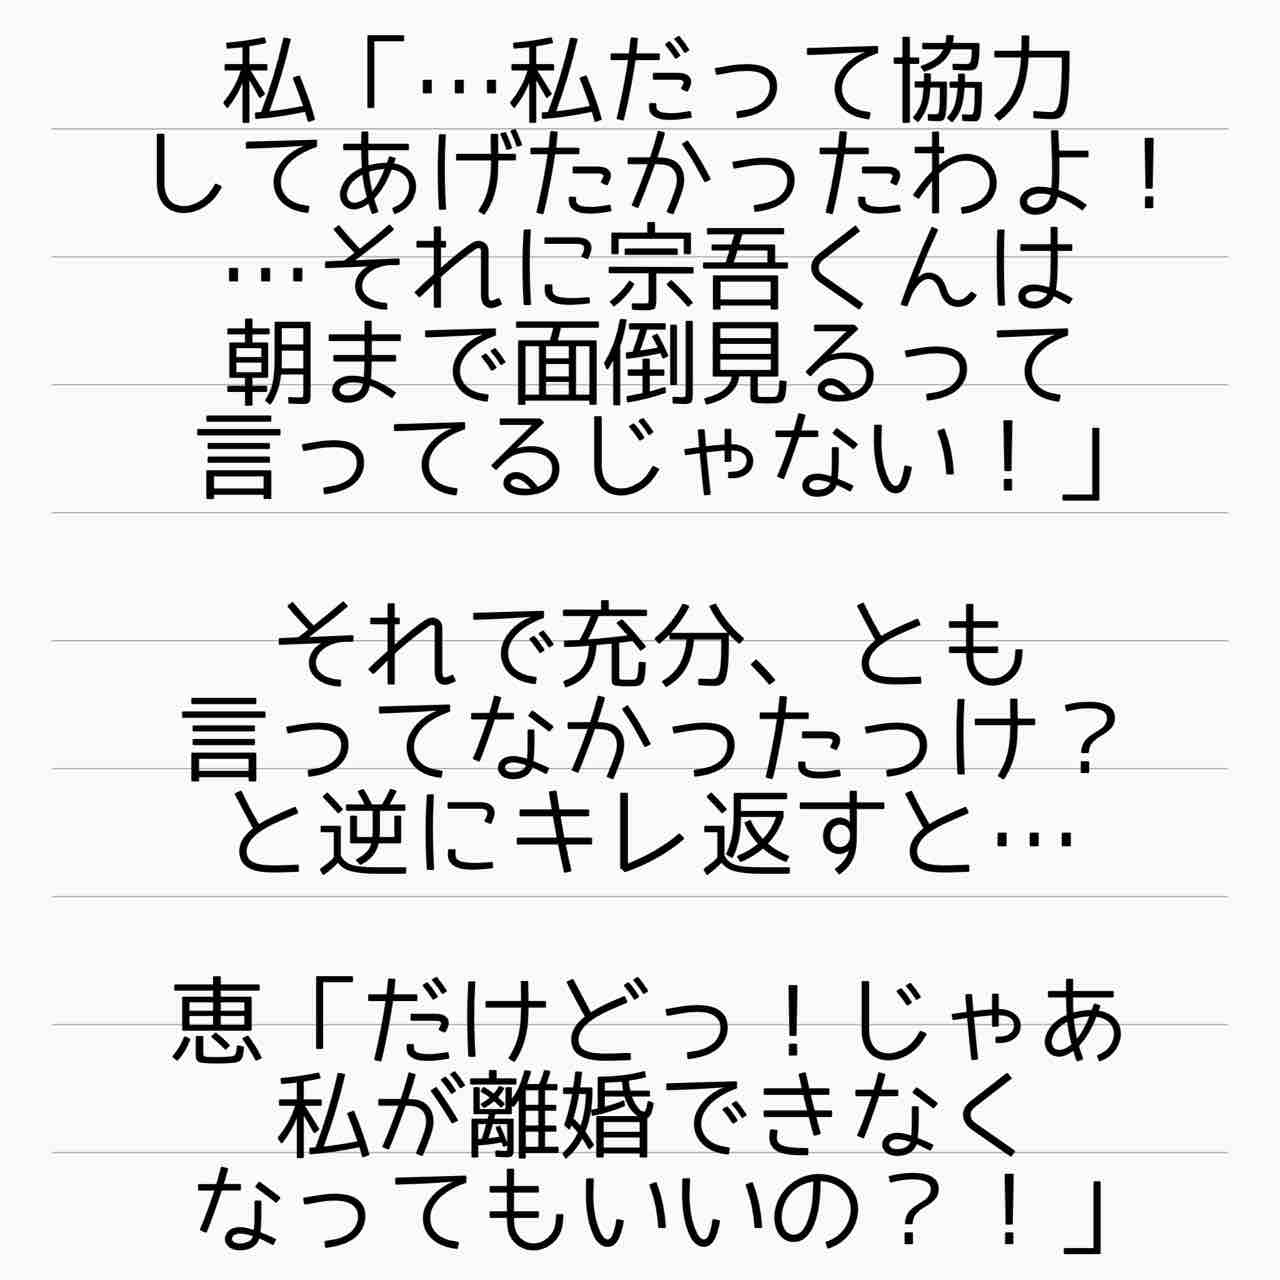 私「…私だって協力
してあげたかったわよ！
…それに宗吾くんは
朝まで面倒見るって
言ってるじゃない！」
それで充分、とも
言ってなかったっけ？
と逆にキレ返すと…
恵「だけどっ！じゃあ
私が離婚できなく
なってもいいの？！」